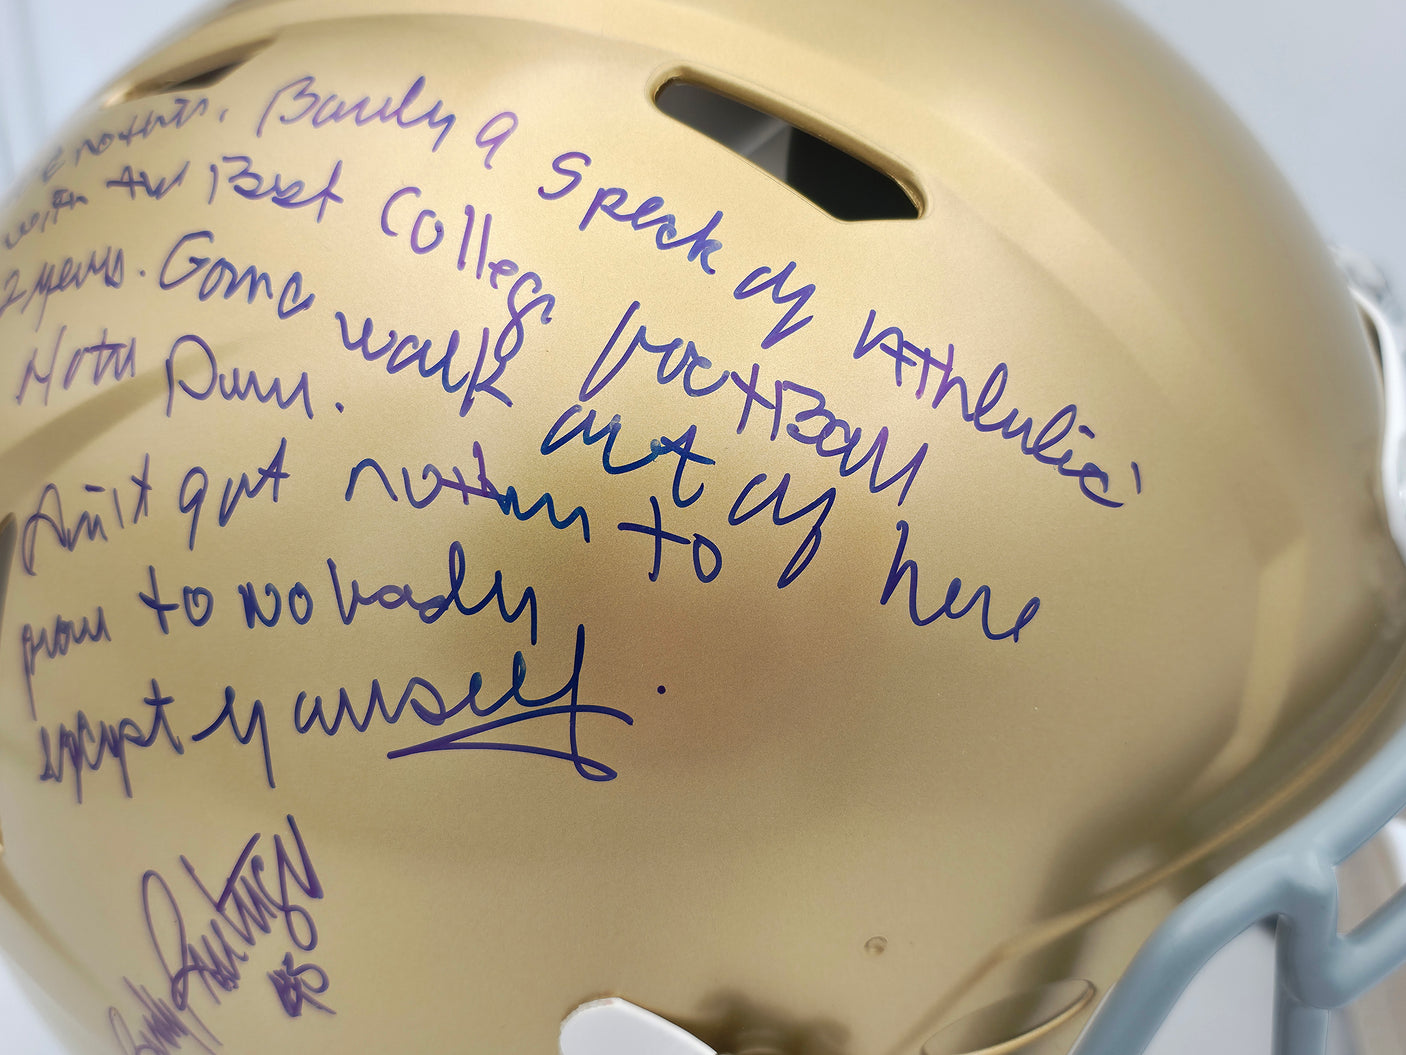 nothin. Barely a Speck of Athletic
with the Best College football
2 years. Gonna walk out of here
Notre Dame.
Ain't got nothin to
prove to nobody
except yourself.
Rudy Ruettiger
#45